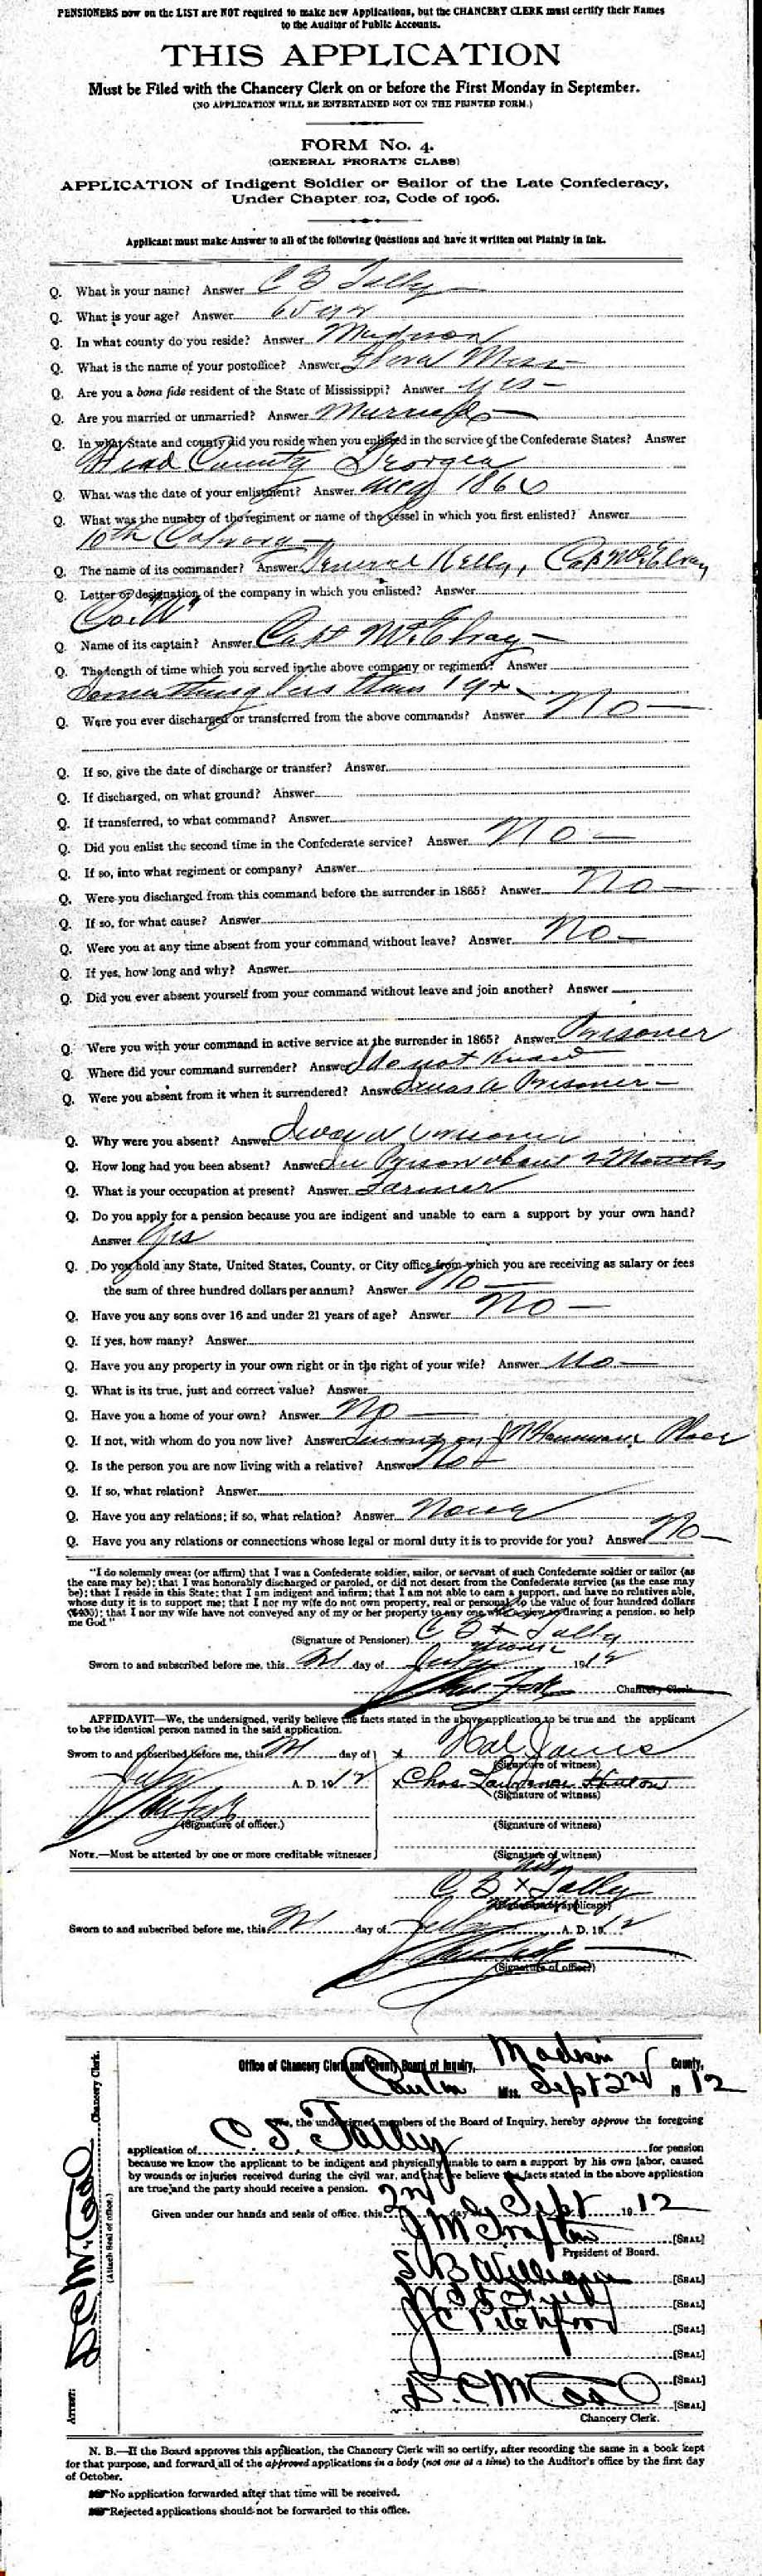 PENSIONERS now on the LIST are NOT required to make new Applications, but the CHANCERY CLERK must certify their Names
to the Auditor of Public Accounts.
THIS APPLICATION
Must be Filed with the Chancery Clerk on or before the First Monday in September.
(NO APPLICATION WILL BE ENTERTAINED NOT ON THE PRINTED FORM.)
FORM No. 4.
(GENERAL PRORATE CLASS)
APPLICATION of Indigent Soldier or Sailor of the Late Confederacy,
Under Chapter 102, Code of 1906.
Applicant must make Answer to all of the following Questions and have it written out Plainly in Ink.
Q. What is your name? Answer C B Tally
Q. What is your age? Answer 65 yrs
Q. In what county do you reside? Answer Madison
Q. What is the name of your postoffice? Answer Flora Miss
Q. Are you a bona fide resident of the State of Mississippi? Answer yes
Q. Are you married or unmarried? Answer Married
Q. In what State and county did you reside when you enlisted in the service of the Confederate States? Answer
County Georgia
Q. What was the date of your enlistment? Answer 186
Q. What was the number of the regiment or name of the vessel in which you first enlisted? Answer
10th
Q. The name of its commander? Answer General Kelly, Cap McElvay
Q. Letter or designation of the company in which you enlisted? Answer
Co.
Q. Name of its captain? Answer Capt McElvay
Q. The length of time which you served in the above company or regiment? Answer
Something less than 1 yr
Q. Were you ever discharged or transferred from the above commands? Answer No
Q. If so, give the date of discharge or transfer? Answer
Q. If discharged, on what ground? Answer
Q. If transferred, to what command? Answer
Q. Did you enlist the second time in the Confederate service? Answer No
Q. If so, into what regiment or company? Answer
Q. Were you discharged from this command before the surrender in 1865? Answer No
Q. If so, for what cause? Answer
Q. Were you at any time absent from your command without leave? Answer No
Q. If yes, how long and why? Answer
Q. Did you ever absent yourself from your command without leave and join another? Answer
Q. Were you with your command in active service at the surrender in 1865? Answer Prisoner
Q. Where did your command surrender? Answer I do not know
Q. Were you absent from it when it surrendered? Answer I was a Prisoner
Q. Why were you absent? Answer I was a Prisoner
Q. How long had you been absent? Answer In Prison about 2 Months
Q. What is your occupation at present? Answer Farmer
Q. Do you apply for a pension because you are indigent and unable to earn a support by your own hand?
Answer Yes
Q. Do you hold any State, United States, County, or City office from which you are receiving as salary or fees
the sum of three hundred dollars per annum? Answer No
Q. Have you any sons over 16 and under 21 years of age? Answer No
Q. If yes, how many? Answer
Q. Have you any property in your own right or in the right of your wife? Answer No
Q. What is its true, just and correct value? Answer
Q. Have you a home of your own? Answer No
Q. If not, with whom do you now live? Answer Place
Q. Is the person you are now living with a relative? Answer No
Q. If so, what relation? Answer
Q. Have you any relations; if so, what relation? Answer None
Q. Have you any relations or connections whose legal or moral duty it is to provide for you? Answer No
"I do solemnly swear (or affirm) that I was a Confederate soldier, sailor, or servant of such Confederate soldier or sailor (as
the case may be); that I was honorably discharged or paroled, or did not desert from the Confederate service (as the case may
be); that I reside in this State; that I am indigent and infirm; that I am not able to earn a support, and have no relatives able,
whose duty it is to support me; that I nor my wife do not own property, real or personal, to the value of four hundred dollars
($400); that I nor my wife have not conveyed any of my or her property to any one with a view to drawing a pension. so help
me God."
(Signature of Pensioner) C B x Tally
Sworn to and subscribed before me, this day of July 1912
Chancery Clerk
AFFIDAVIT—We, the undersigned, verily believe the facts stated in the above application to be true and the applicant
to be the identical person named in the said application.
Sworn to and subscribed before me, this day of
July A. D. 1912
(Signature of officer.)
NOTE.—Must be attested by one or more creditable witnesses
x
(Signature of witness)
x Chas
(Signature of witness)
(Signature of witness)
(Signature of witness)
his
C B x Tally
(Signature of applicant)
Sworn to and subscribed before me, this day of July A. D. 1912
(Signature of office?)
Office of Chancery Clerk and County Board of Inquiry, Madison County,
Canton Miss. Sept 2nd 1912
We, the undersigned members of the Board of Inquiry, hereby approve the foregoing
application of C. T. Talley for pension
because we know the applicant to be indigent and physically unable to earn a support by his own labor, caused
by wounds or injuries received during the civil war, and that we believe the facts stated in the above application
are true and the party should receive a pension.
Given under our hands and seals of office, this 2nd day of Sept 1912
J M Grafton [SEAL]
President of Board.
S B Williams [SEAL]
[SEAL]
J C Pitchford [SEAL]
[SEAL]
[SEAL]
D. C McCool [SEAL]
Chancery Clerk.
ATTEST: D C McCool Chancery Clerk.
(Attach Seal of office.)
N. B.—If the Board approves this application, the Chancery Clerk will so certify, after recording the same in a book kept
for that purpose, and forward all of the approved applications in a body (not one at a time) to the Auditor's office by the first day
of October.
No application forwarded after that time will be received.
Rejected applications should not be forwarded to this office.